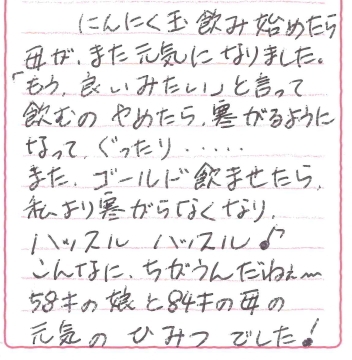 にんにく玉飲み始めたら
母が、また元気になりました。
「もう、良いみたい」と言って
飲むの やめたら、寒がるように
なって、ぐったり・・・・・
また、ゴールド飲ませたら、
私より寒がらなくなり、
ハッスル ハッスル♪
こんなに、ちがうんだねぇ〜
58才の娘と84才の母の
元気の ひみつ でした!